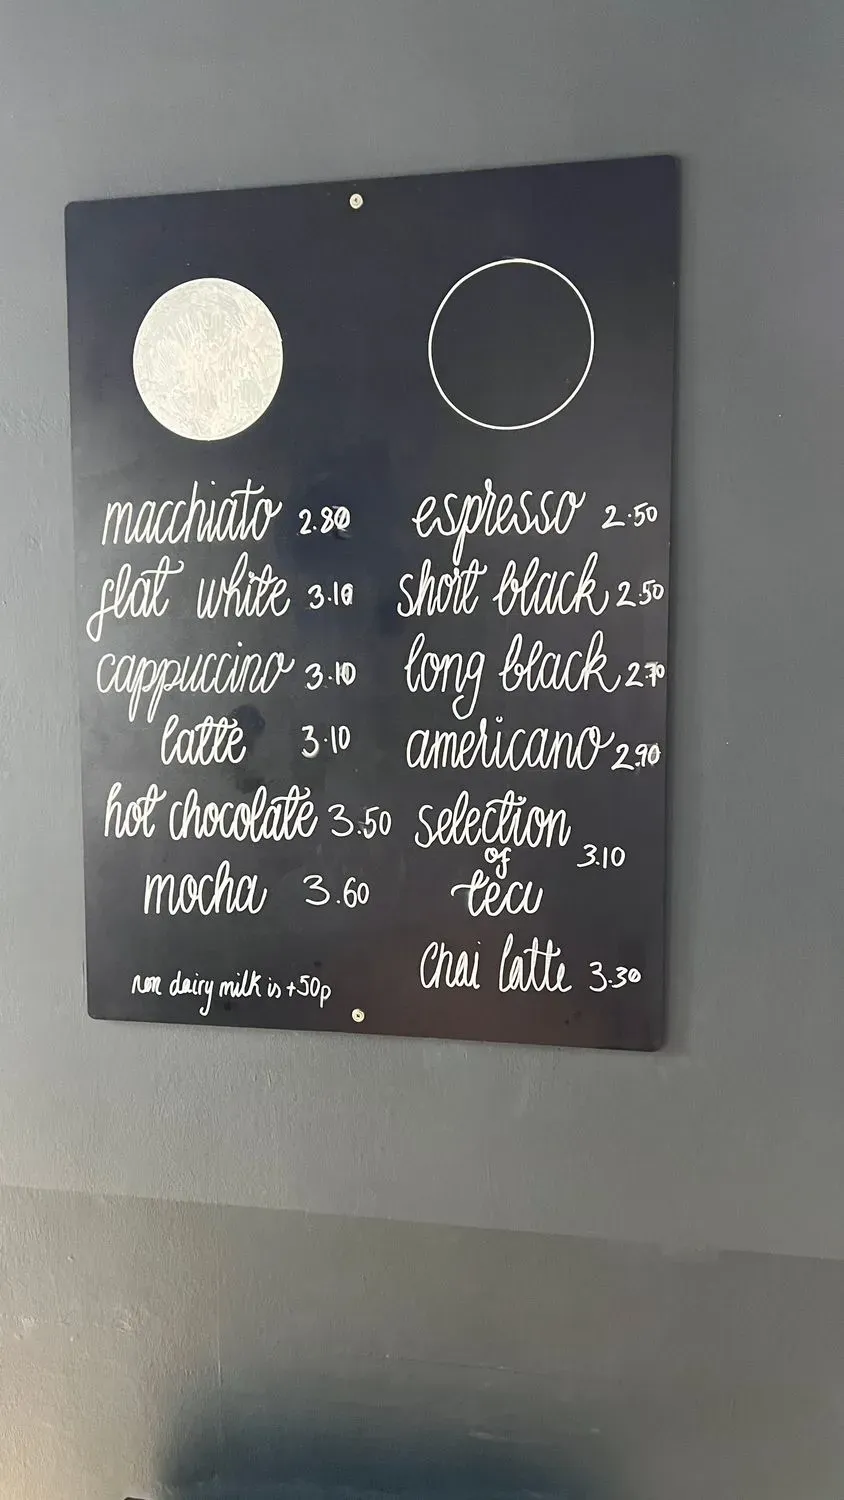 macchiato 2.80
flat white 3.10
cappuccino 3.10
latte 3.10
hot chocolate 3.50
mocha 3.60
non dairy milk is +50p
espresso 2.50
short black 2.50
long black 2.70
americano 2.90
selection
of 3.10
tea
Chai latte 3.30